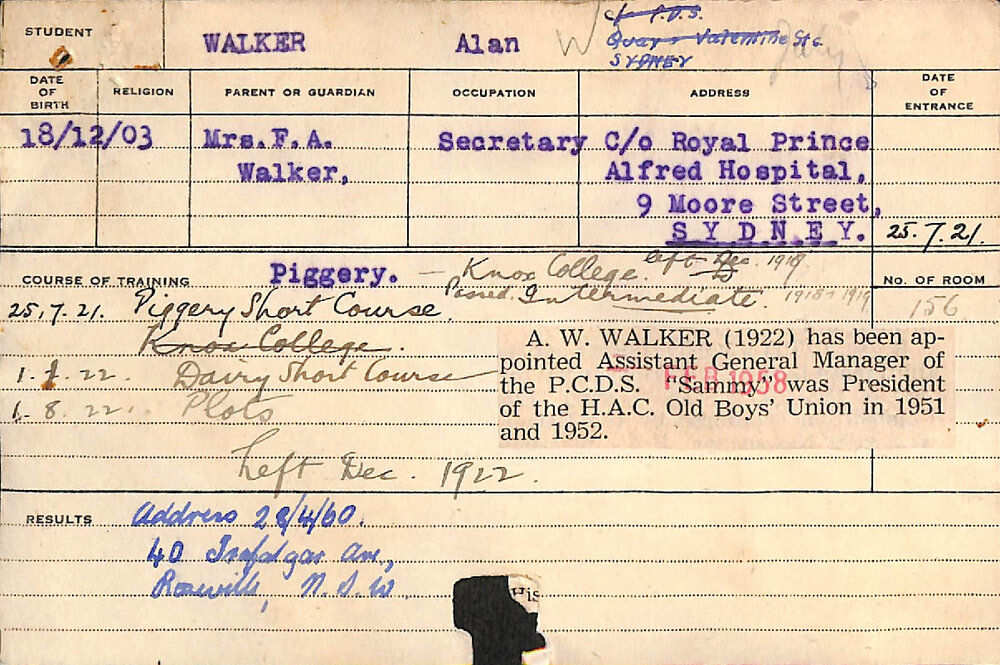 STUDENT
WALKER Alan W
c/- P.D.S.
Quay & Valentine Sts.
SYDNEY
DATE OF BIRTH
RELIGION
PARENT OR GUARDIAN
OCCUPATION
ADDRESS
DATE OF ENTRANCE
18/12/03 Mrs.F.A. Secretary C/o Royal Prince
Walker, Alfred Hospital,
9 Moore Street,
SYDNEY. 25.7.21.
COURSE OF TRAINING Piggery. — Knox College. left Dec. 1919
Passed Intermediate. 1918 + 1919
No. OF ROOM
156
25.7.21. Piggery Short Course.
Knox College.
1.1.22. Dairy Short Course
1.8.22. Plots
Left Dec. 1922.
A. W. WALKER (1922) has been ap-
pointed Assistant General Manager of
the P.C.D.S. "Sammy" was President
of the H.A.C. Old Boys' Union in 1951
and 1952.
FEB 1958
RESULTS Address 28/4/60.
40 Trafalgar Ave.,
Roseville, N.S.W.
His